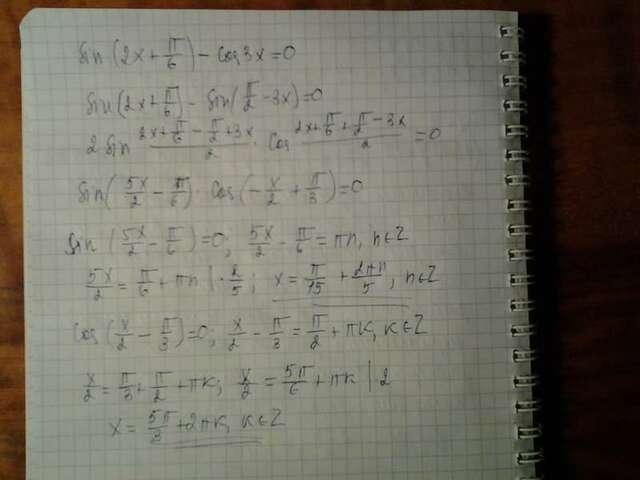 sin(2x+π/6) - cos3x=0
sin(2x+π/6) - sin(π/2 -3x)=0
2 sin (2x+π/6 - π/2 +3x)/2 · cos (2x+π/6 + π/2 -3x)/2 =0
sin(5x/2 - π/6)· cos(-x/2 + π/3)=0
sin(5x/2 - π/6)=0; 5x/2 - π/6 = πn, n∈Z
5x/2 = π/6 + πn |· 2/5; x= π/15 + 2πn/5, n∈Z
cos(x/2 - π/3)=0; x/2 - π/3 = π/2 + πk, k∈Z
x/2 = π/3 + π/2 + πk; x/2 = 5π/6 + πk | 2
x= 5π/3 +2πk, k∈Z